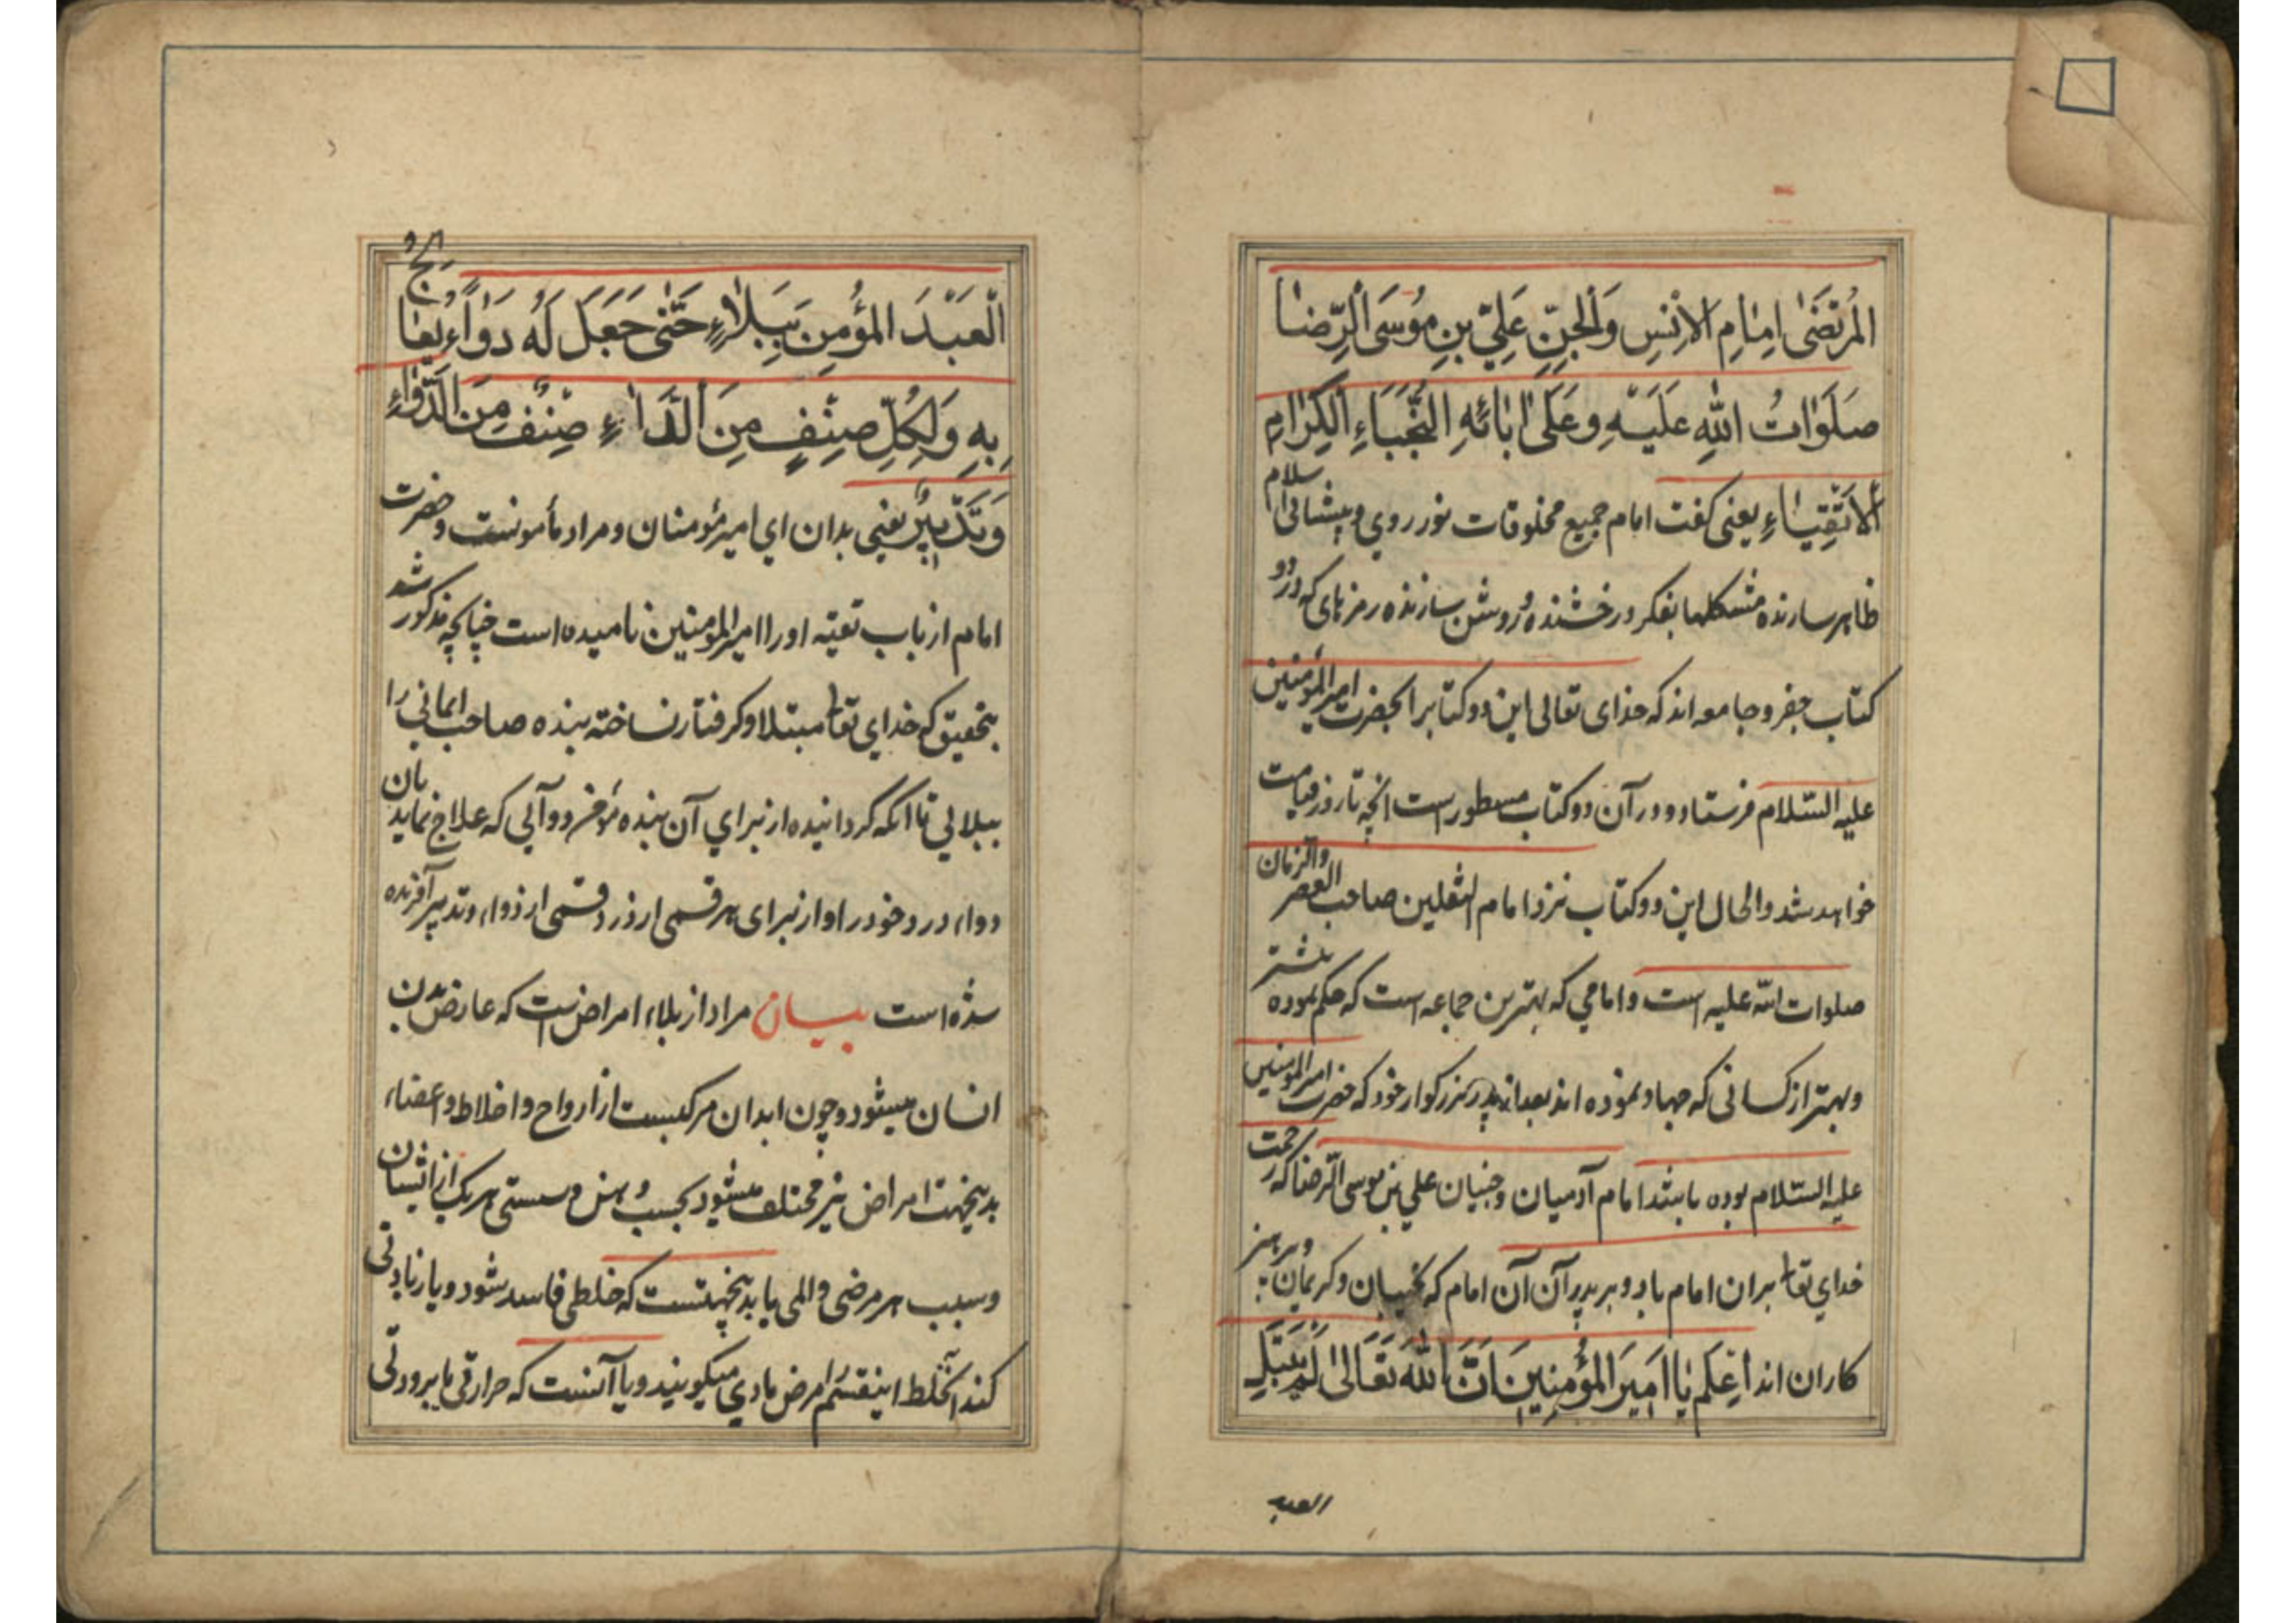 المُرتَضىٰ اِمٰامِ الاِنْسِ وَالْجِنِّ عَلِيِّ بنِ مُوسَى الرِّضٰا
صَلَوٰاتُ اللهِ عَلَيْهِ وعَلىٰ اٰبائِهِ النُّجَبَاءِ الْكِرَامِ
الْاَتْقِيٰاءِ یعنی کفت امام جمیع مخلوقات نور روي و پیشانی اسلام
ظاهر سازنده مشکلها بفکر درخشنده و روشن سازنده رمزهای که در دو
کتاب جفر و جامعه اند که خدای تعالی این دو کتابرا بحضرت امیر المؤمنین
علیه السّلام فرستاد و در آن دو کتاب مسطورست انچه تا روز قیامت
خواهد شد والحال این دو کتاب نزد امام الثقلین صاحب العصر والزمان
صلوات الله علیه است و امامي که بهترین جماعه است که حکم نموده
و بهتر از کسانی که جهاد نموده اند بعد از پدر بزرکوار خود که حضرت امیر المومنین
علیه السّلام بوده باشد امام آدمیان و جنیان علي بن موسی الرّضا که رحمت
خداي تعا بران امام باد و بر پدرآن آن امام که نجیبان و کریمان و پرهیز
کاران اند اِعْلَم يٰا اَمِيرَ المُؤْمِنِينَ اِنَّ اللهَ تَعَالىٰ لَم يَبْتَلِ
العبد
الْعَبْدَ المُؤمِنَ بِبَلٰاءٍ حَتّىٰ جَعَلَ لَهُ دَوٰاءً يُعٰالِجُ
بِهِ وَلِكُلِّ صِنْفٍ مِنَ الدّٰاءِ صِنْفٌ مِنَ الدَّوٰاءِ
وَتَدْبِيرٌ یعنی بدان اي امیر مؤمنان و مراد مأمونست و حضرت
امام از باب تقیّه اورا امیر المؤمنین نامیده است چنانچه مذکور شد
بتحقیق که خداي تعا مبتلا و کرفتار نساخته بنده صاحب ایمانی را
ببلایی تا انکه کردانیده از براي آن بنده مؤمن دوآیی که علاج نماید بان
دواء درد خود را و از برای هر قسمی از درد قسمی از دواء و تدبیر آفریده
شده است بیـان مراد از بلاء امراضست که عارض بدن
انسان میشود و چون ابدان مرکبست از ارواح و اخلاط و اعضاء
بدینجهت امراض نیز مختلف میشود بحسب وهن و سستی هریک از ایشان
و سبب هر مرضی و المی یا بدینجهتست که خلطی فاسد شود و یا زیادتی
کند آنخلط اینقسم را مرض مادي میکویند و یا آنست که حرارتی یا برودتی